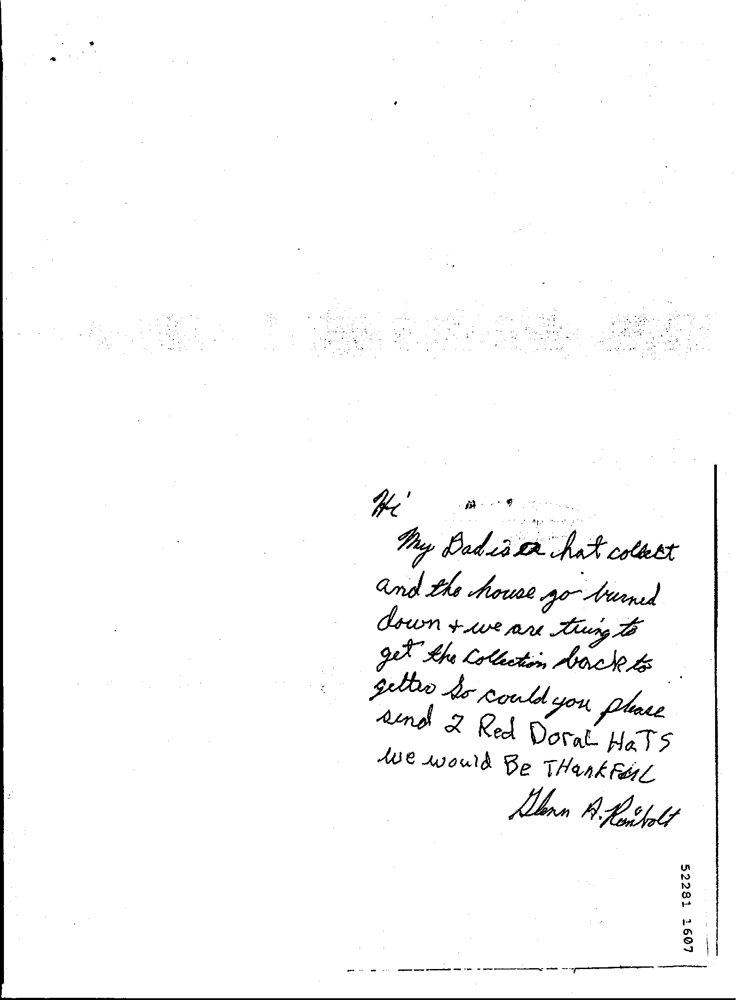 Hi
My Dad is a hat collect
and the house go burned
down + we are truing to
get the Collection back to
getter So could you please
send 2 Red Doral HaTS
we would Be THankFull
Glenn A.
52281 1607